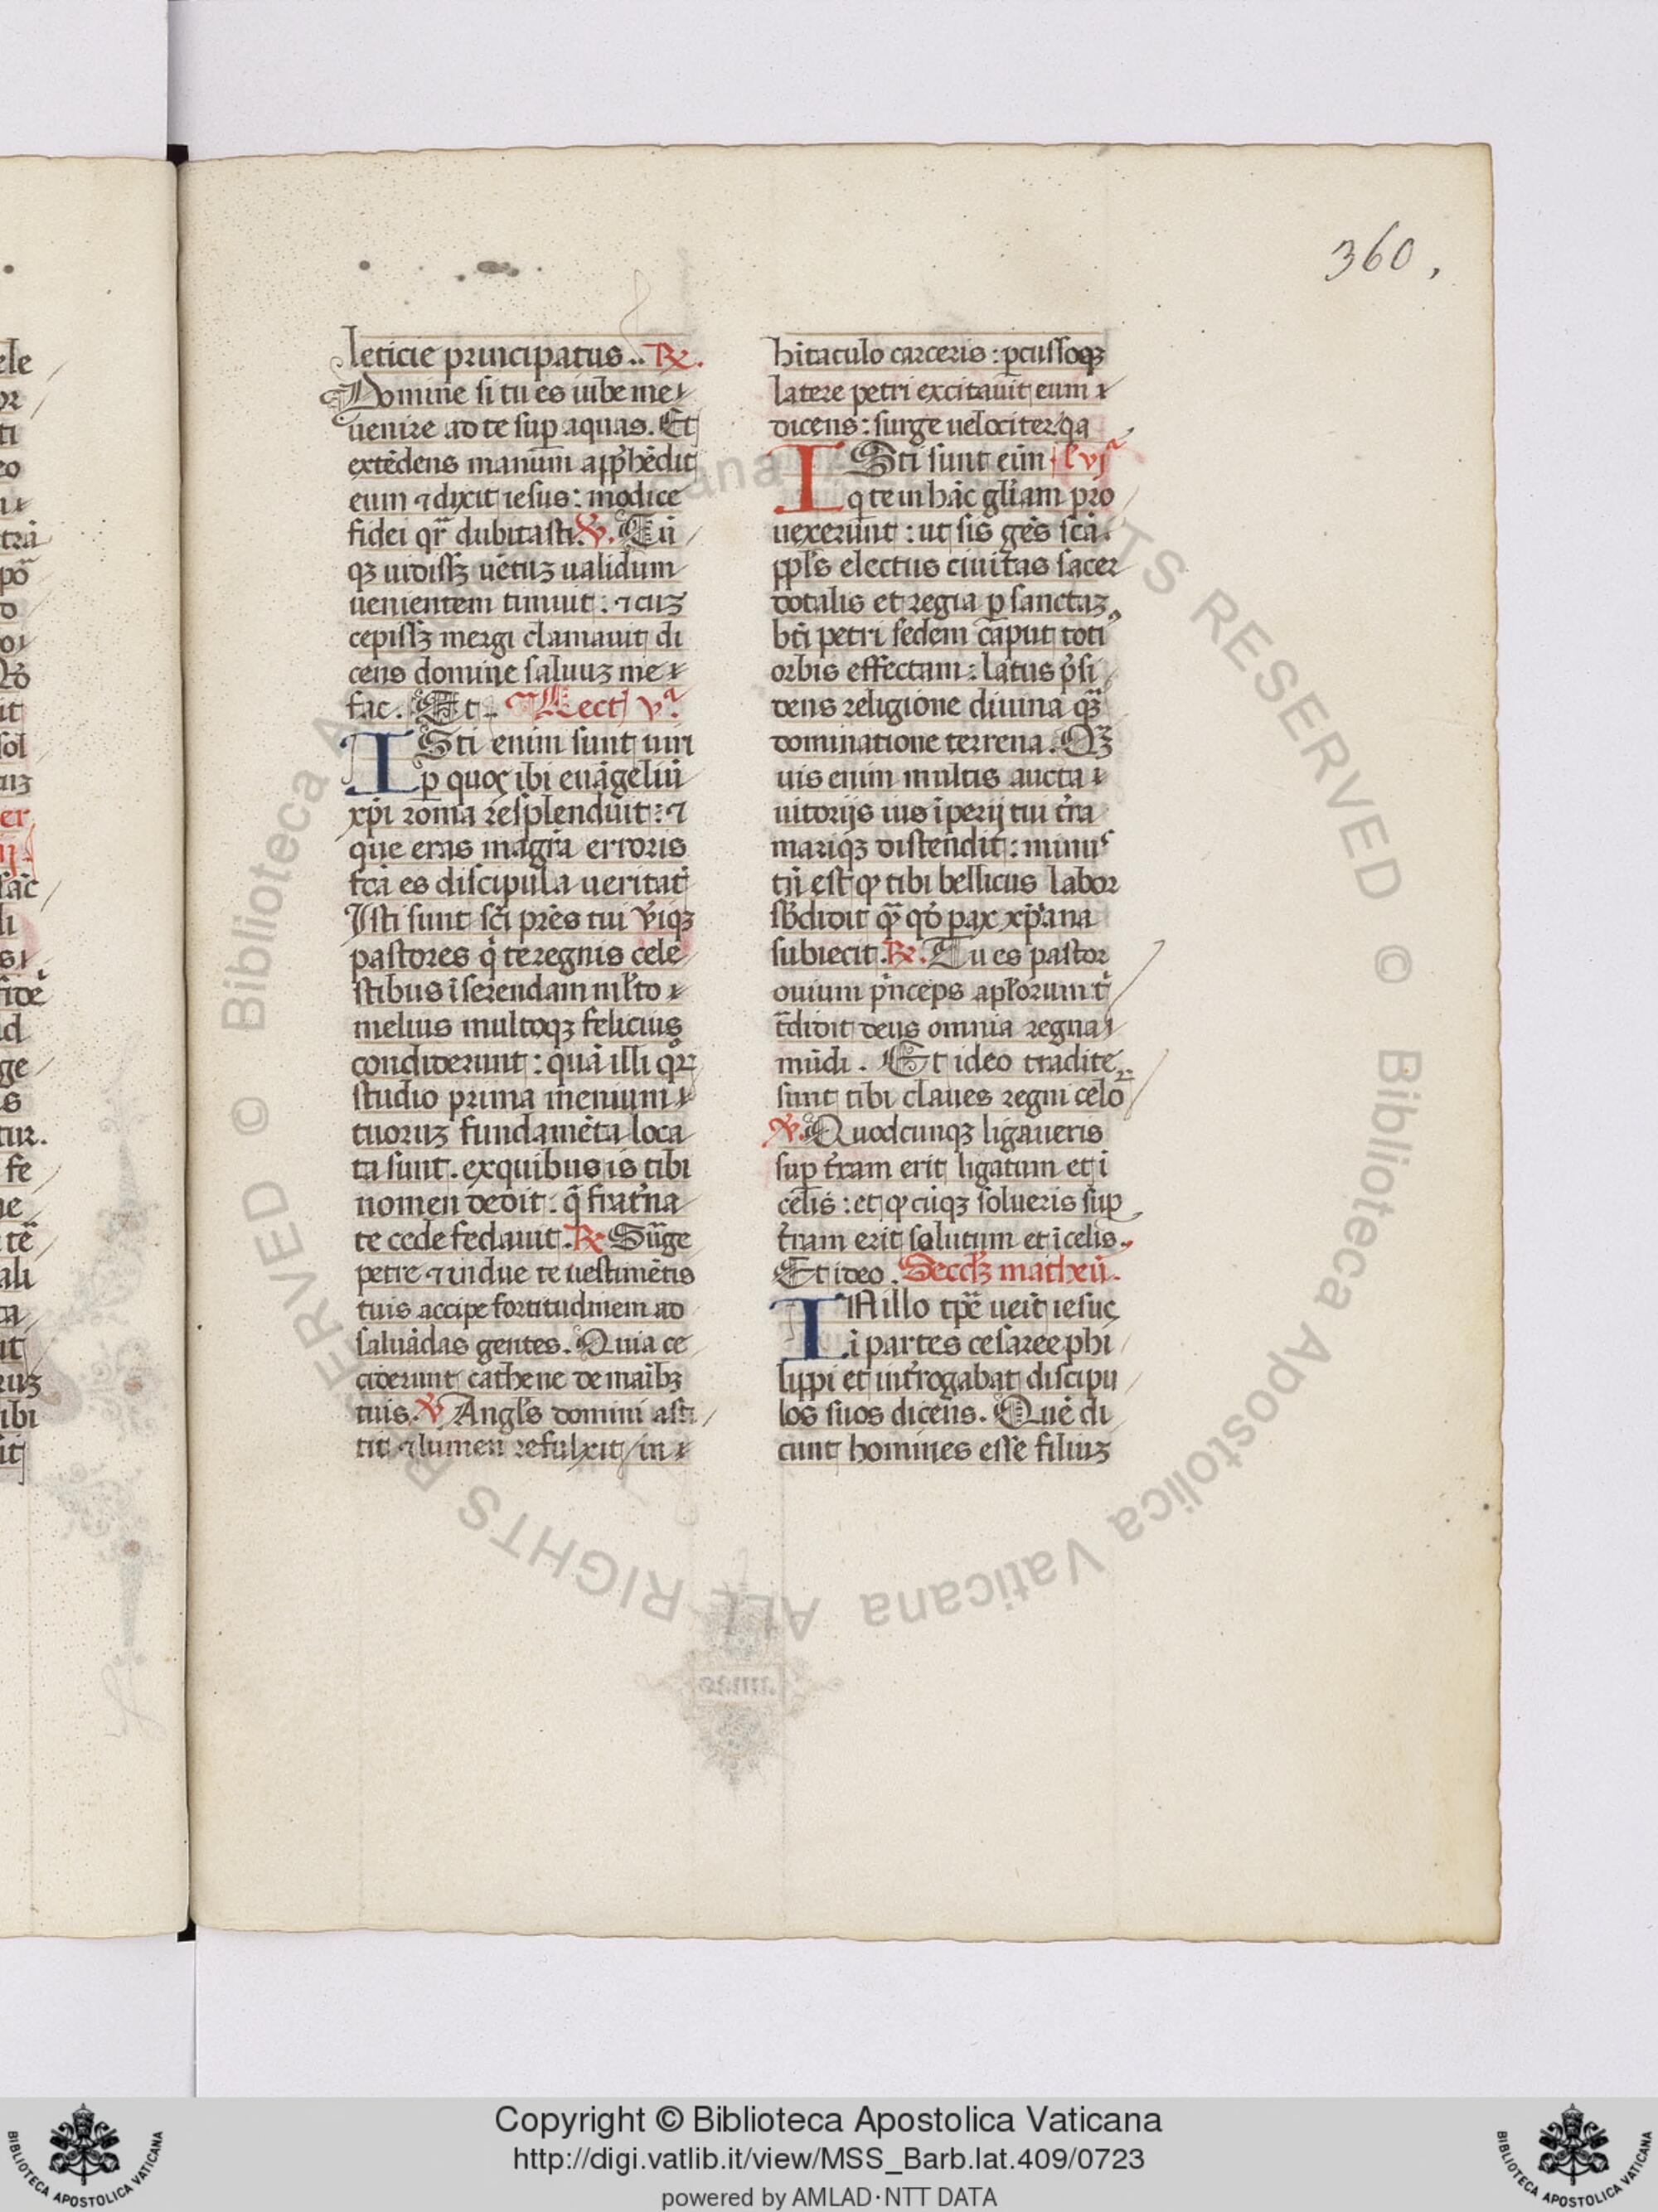 360.
leticie principatus.. ℞.
Domine si tu es iube me
uenire ad te sup aquas. Et
extēdens manum appͥhēdit
eum ⁊ dixit iesus: modice
fidei qr̄ dubitasti. ℣. Cū
qꝫ uidissꝫ uētuꝫ ualidum
uenientem timuit: ⁊ cuꝫ
cepissꝫ mergi clamauit di
cens domine saluuꝫ me
fac. Et. Lect vᵃ.
ISti enim sunt uiri
p̲ quos ibi euāgeliū
xp̄i roma resplenduit: ⁊
que eras magr̄a erroris
fcā es discipula ueritatꝭ
Isti sunt sc̄i pr̄es tui v̄iqꝫ
pastores qͥ te regnis cele
stibus īserendam mlto
melius multoqꝫ felicius
condiderunt: quā illi qͦꝝ
studio prima menium
tuoruꝫ fundamēta loca
ta sunt. ex quibus is tibi
nomen dedit: qͥ frat̄na
te cede fedauit. ℞ Sūge
petre ⁊ indue te uestimētis
tuis accipe fortitudinem ad
saluādas gentes. Quia ce
ciderunt cathene de maībꝫ
tuis. ℣ Angl̄s domini asti
tit ⁊ lumen refulxit in
hitaculo carceris: p̲cussoqꝫ
latere petri excitauit eum
dicens: surge uelociter. qa
ISti sunt eīm. l vjᵃ
q te in hāc gl̄iam pro
uexerunt: ut sis gēs scā.
ppl̄s electus ciuitas sacer
dotalis et regia p̲ sanctaꝫ
bt̄i petri sedem caput toti⁹
orbis effectam: latius p̄si
dens religione diuina qͣꝫ
dominatione terrena. Qꝫ
uis enim multis aucta
uitorijs ius īperij tui t̄ra
mariqꝫ distendit: minu⁹
tn̄ est qꝙ tibi bellicus labor
sb̄didit qͣꝫ qd̄ pax xp̄iana
subiecit. ℞. Tu es pastor
ouium pͥnceps apl̄orum tͥ
t̄didit deus omnia regna
mūdi. Et ideo tradite
sunt tibi claues regni celoꝝ
℣. Quodcunqꝫ ligaueris
sup t̄ram erit ligatum et ī
celis: et qꝙ cūqꝫ solueris sup
t̄ram erit solutum et ī celis.
Et ideo. Secdꝫ matheū.
IN illo tp̄e ueit iesus
ī partes cesaree phi
lippi et int̄rogabat discipu
los suos dicens. Quē di
cunt homines esse filiuꝫ
Copyright © Biblioteca Apostolica Vaticana
http://digi.vatlib.it/view/MSS_Barb.lat.409/0723
powered by AMLAD·NTT DATA